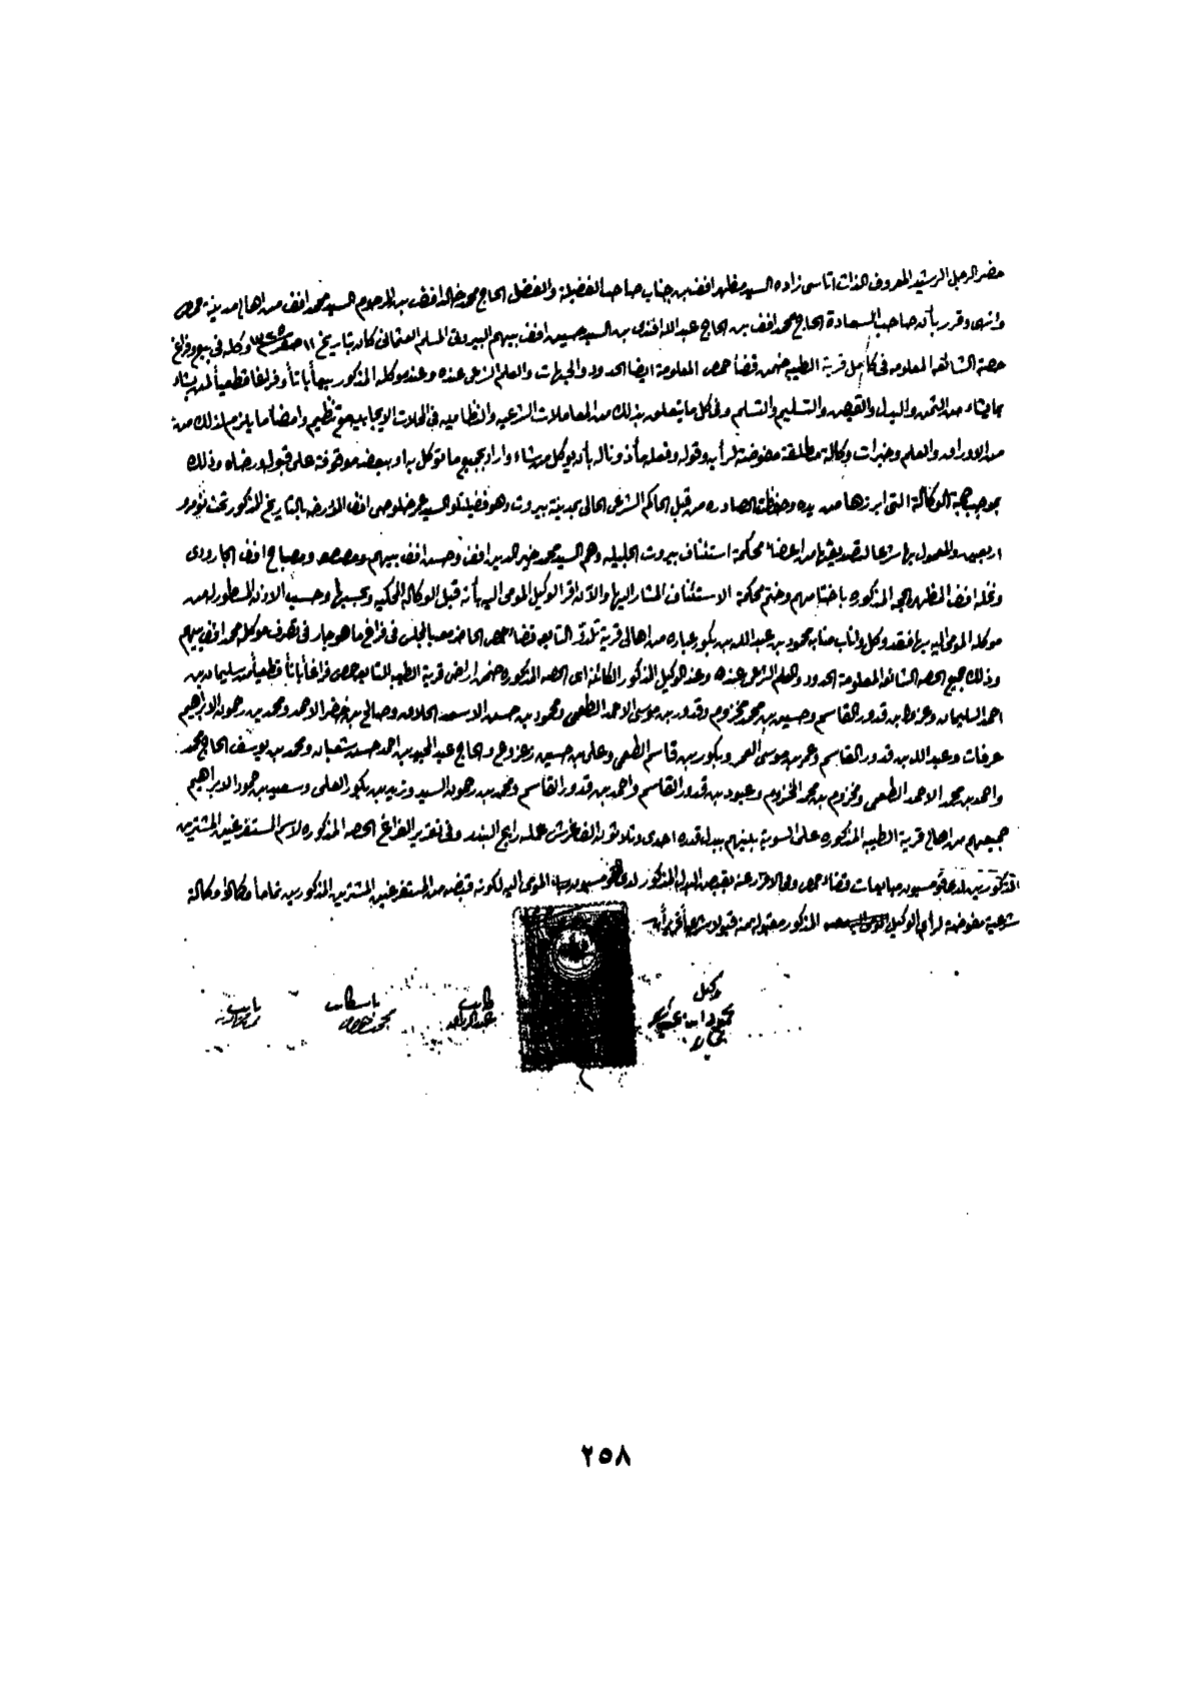 حضر الرجل الرشيد المعروف الذات اتاسي زاده السيد مظهر افندي بن جناب صاحب الفضيلة والفضل الحاج محمد خالد افندي بن المرحوم السيد محمد افندي من اهالي مدينة حمص
وانهى وقرر بأن صاحب السعادة الحاج محمد افندي بن الحاج عبد الله افندي بن السيد حسين افندي بيهم البيروتي المسلم العثماني كان بتاريخ ١١ صفر وكله في بيع وفراغ
حصة الشائعه المعلومه في كامل قرية الطيبه ضمن قضأ حمص المعلومة ايضا الحدود والجهات والعلم الشرعي عنده وعند موكله المذكور بيعاً باتاً وفراغاً قطعياً لمن يشاء
بما يشاء من الثمن والبدل والقبض والتسليم والتسلم وفي كل ما يتعلق بذلك من المعاملات الشرعيه والنظاميه في المحلات الايجابيه مع تنظيم وامضا ما يلزم لذلك من
من الاوراق والعلم وخبرات وكالة مطلقة مفوضة لرأيه وقوله وفعله مأذونا له بأن يوكل من شاء واراد بجميع ما توكل به او ببعضه موقوفة على قبوله ورضاه وذلك
بموجب حجة الوكالة التي ابرزها من يده وحفظت الصادره من قبل الحاكم الشرعي الحالي بمدينة بيروت وهو فضيلتلو السيد عمر خلوصي افندي المؤرخه بالتاريخ المذكور تحت نومرو
اربعين والمعمول بها شرعا لتصديقها من اعضاء محكمة استئناف بيروت الجليله وهم السيد محمد خير الدين افندي وحسن افندي بيهم ومصباح افندي الجارودي
ونخله افندي المظهره الحجه المذكوره باختامهم وختم محكمة الاستئناف المشار اليها والآن اقر الوكيل المومى اليه بأنه قبل الوكالة المحكيه وبحسبها وحسب الاذن المسطور له من
موكله المومى اليه بها فقد وكل واناب منابه محمود بن عبد الله بن بكور عباره من اهالي قرية تلدو التابعه قضاء حمص الحاضر معه بالمجلس في فراغ ما هو جار في تصرف موكله محمد افندي بيهم
وذلك جميع الحصه الشائعه المعلومة الحدود والعلم الشرعي عنده وعند الوكيل المذكور الكائنه اى الحصه المذكوره ضمن اراضي قرية الطيبه التابعه حمص فراغاً باتاً قطعياً من سليمان بن
احمد السليمان وعزو بن قدور القاسم وحسين بن محمد مخزوم وقدور بن موسى الاحمد الطعمي ومحمود بن حسن الاسعد الحلاق وصالح بن خضر الاحمد ومحمد بن رحمون الابراهيم
عرفات وعبد الله بن قدور القاسم وعمر بن موسى العمر وبكور بن قاسم الطعمي وعلي بن حسين زعزوع والحاج عبد الحميد بن احمد حسن شعبان ومحمد بن يوسف الحاج محمد
واحمد بن محمد الاحمد الطعمي ومخزوم بن محمد المخزوم وعبود بن قدور القاسم واحمد بن قدور القاسم ومحمد بن رحمون السيد وزيد بن بكور العلي وسعيد بن حمود الابراهيم
جميعهم من اهالي قرية الطيبه المذكوره على السوية بينهم ببدل قدره احدى وثلاثون الف غرش عمله رايج البندر وفي تقرير الفراغ الحصه المذكوره لاسم المستفرغين المشترين
المذكورين لدى قوميسيون مبايعات قضاء حمص وفي الاقرار عنه بقبض البدل المذكور لدى القوميسيون المومى اليه لكونه قبضه من المستفرغين المشترين المذكورين تماماً وكمالا وكالة
شرعية مفوضة لرأي الوكيل المذكور مقبوله منه قبولا شرعياً تحريراً
وكيل
محمود ابن عبد الله
عباره
كاتب
باسكاتب
نايب
٢٥٨